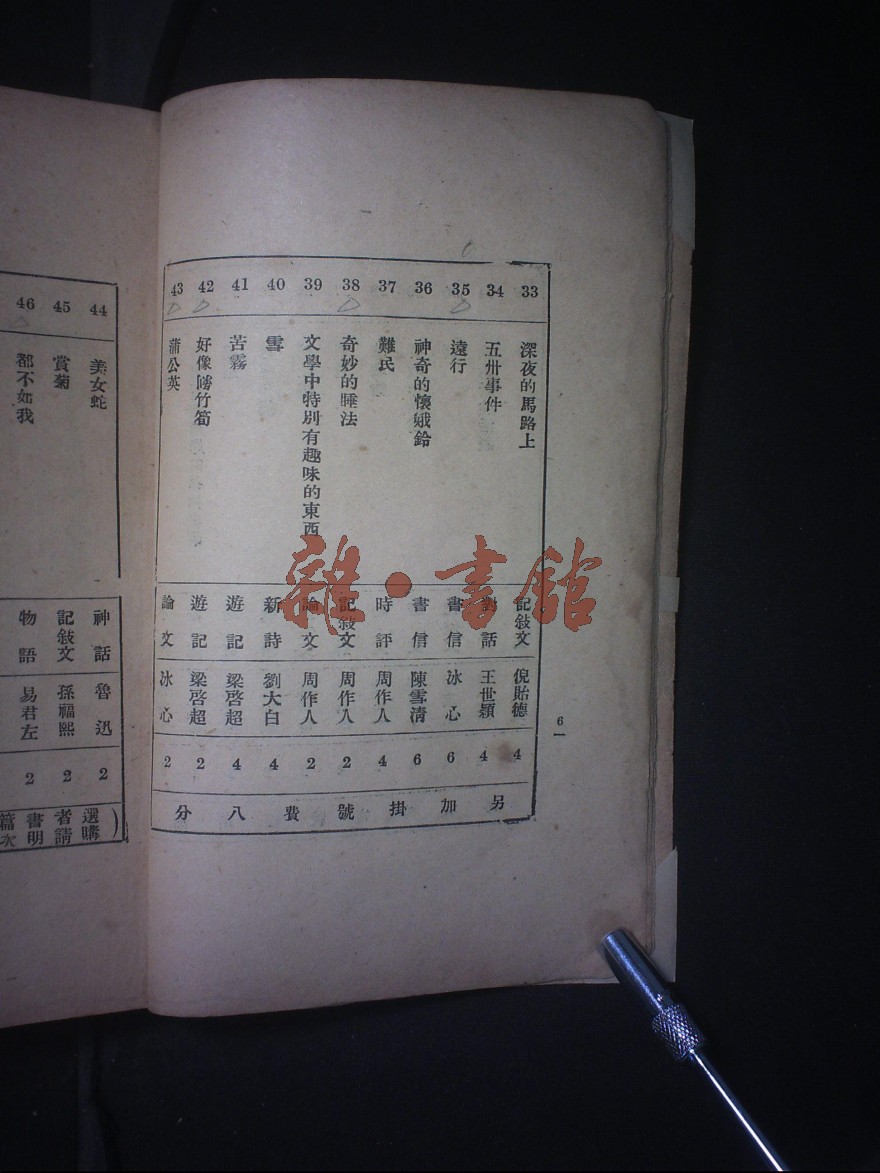 33 深夜的馬路上 記敍文 倪貽德 4
34 五卅事件 對話 王世穎 4
35 遠行 書信 冰心 6
36 神奇的懷娥鈴 書信 陳雪清 6
37 難民 時評 周作人 4
38 奇妙的睡法 記敍文 周作人 2
39 文學中特別有趣味的東西 論文 周作人 2
40 雪 新詩 劉大白 4
41 苦霧 遊記 梁啓超 4
42 好像 竹筍 遊記 梁啓超 2
43 蒲公英 論文 冰心 2
另加掛號費八分
6
44 美女蛇 神話 魯迅 2
45 賞菊 記敍文 孫福熙 2
46 都不如我 物語 易君左 2
選購
者請
書明
篇次
雜·書館